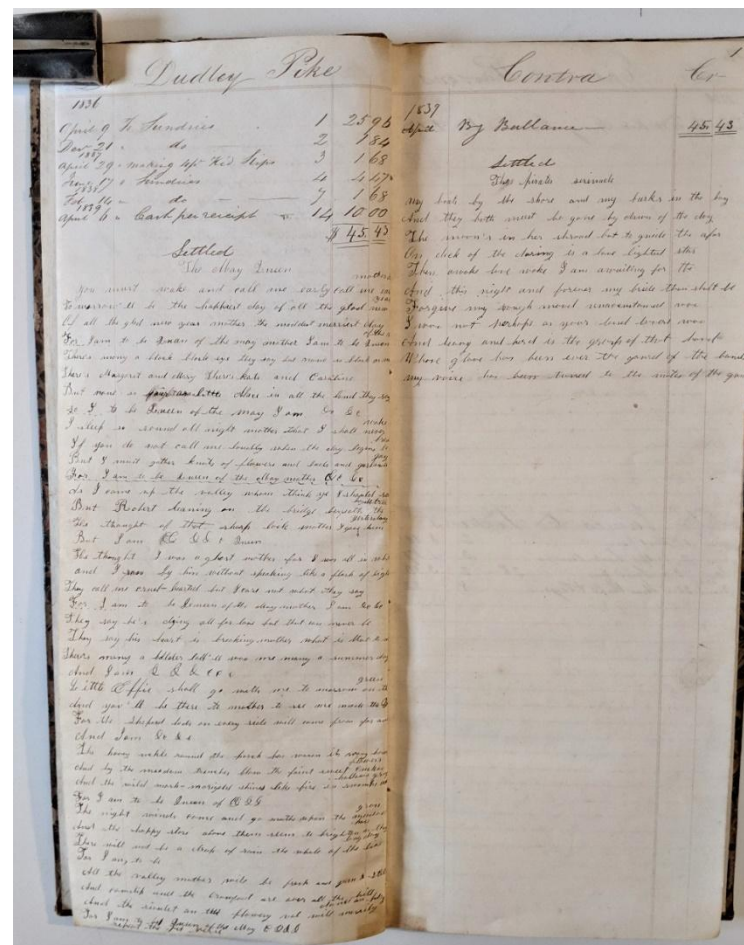 Dudley Pike
1836
April 9 To Sundries 1 25 96
Dec 21 " do 2 1 84
1837
April 29 " making 4pr Kid Slips 3 1 68
June 17 " Sundries 4 4 47
1838
Feb 14 " do 7 1 68
1839
April 6 " Cash per receipt 14 10 00
$ 45.43
Settled
The May Queen
you must wake and call me early call me mother
tomorrow 'll be the happiest day of all the glad new year
Of all the glad new year mother the maddest merriest day
For I am to be Queen of the may mother I am to be Queen of the
There's many a black black eye they say but none so black as
There's Margaret and Mary There's Kate and Caroline
But none so as little Alice in all the land they say
so I to be Queen of the May I am &c &c
I sleep so sound all night mother that I shall never wake
If you do not call me loudly when the day begins to
But I must gather knots of flowers and buds and garlands gay
For I am to be queen of the May mother &c &c
As I came up the valley whom think ye I should see
But Robert leaning on the bridge beneath the
He thought of that sharp look mother I gave him yesterday
But I am &c && Queen
He thought I was a ghost mother for I was all in white
and I ran by him without speaking like a flash of light
They call me cruel hearted but I care not what they say
For I am to be Queen of the May mother I am &c &c
They say he's dying all for love but that can never be
They say his heart is breaking mother what is that to
There's many a bolder lad 'll woo me many a summer day
And I am & & & &c
Little Effie shall go with me to morrow green
And you 'll be there to mother to see me made the Q
For the Shepherd lads on every side will come from far
And I am &c &c
The honey suckle round the porch has woven its wavy
And by the meadow trenches blow the faint sweet cuckoo flowers
And the wild marsh marigold shines like fire in swamps hollows gray
For I am to be Queen of
The night winds come and go mother upon the meadow grass
And the happy stars above them seem to brighten
There will not be a drop of rain the whole of the
For I am to be
All the valley mother will be fresh and green & still
And cowslip and the crowfoot are over all the hill
And the rivulet in the flowery will merrily
For I am to be Queen of the May
repeat the 1st verse
Contra Cr
1
1839
April By Ballance 45.43
Settled
The pirates serinade
My boat by the shore and my bark's in the bay
And they both must be gone by dawn of the day
The moon's in her shroud but to guide the afar
On deck of the daring is a love lighted star
Then awake love wake I am awaiting for the
And this night and forever my bride thou shalt be
Forgive my rough mood unaccustomed
I woo not perhaps as your land lovers woo
And leang and herd is the grasp of that hand
Whose glove has been ever the guard of the
My voice has been tuned to the of the gun